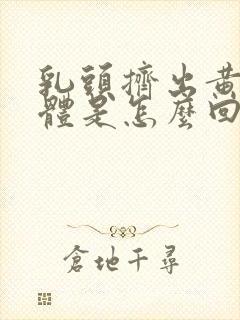 乳頭擠出黃
體是怎麼回
倉地千尋